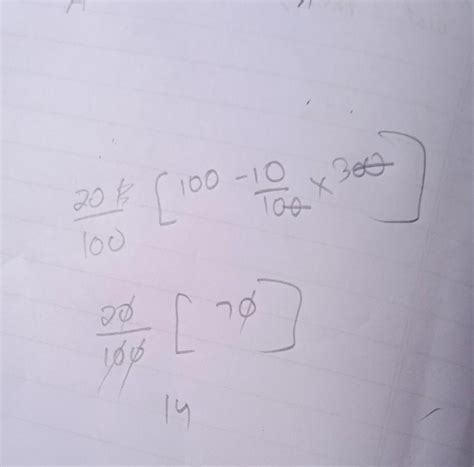 20/100 [100 - 10/100 × 300]
20/100 [70]
14